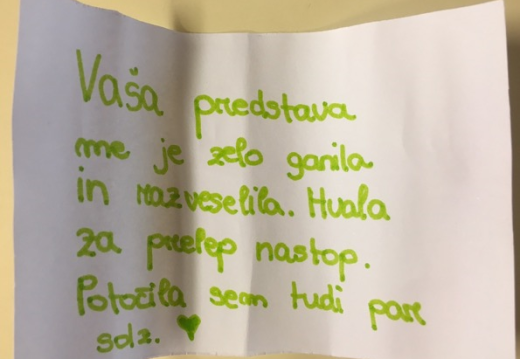 Vaša predstava
me je zelo ganila
in razveselila. Hvala
za prelep nastop.
Potočila sem tudi par
solz. ♥